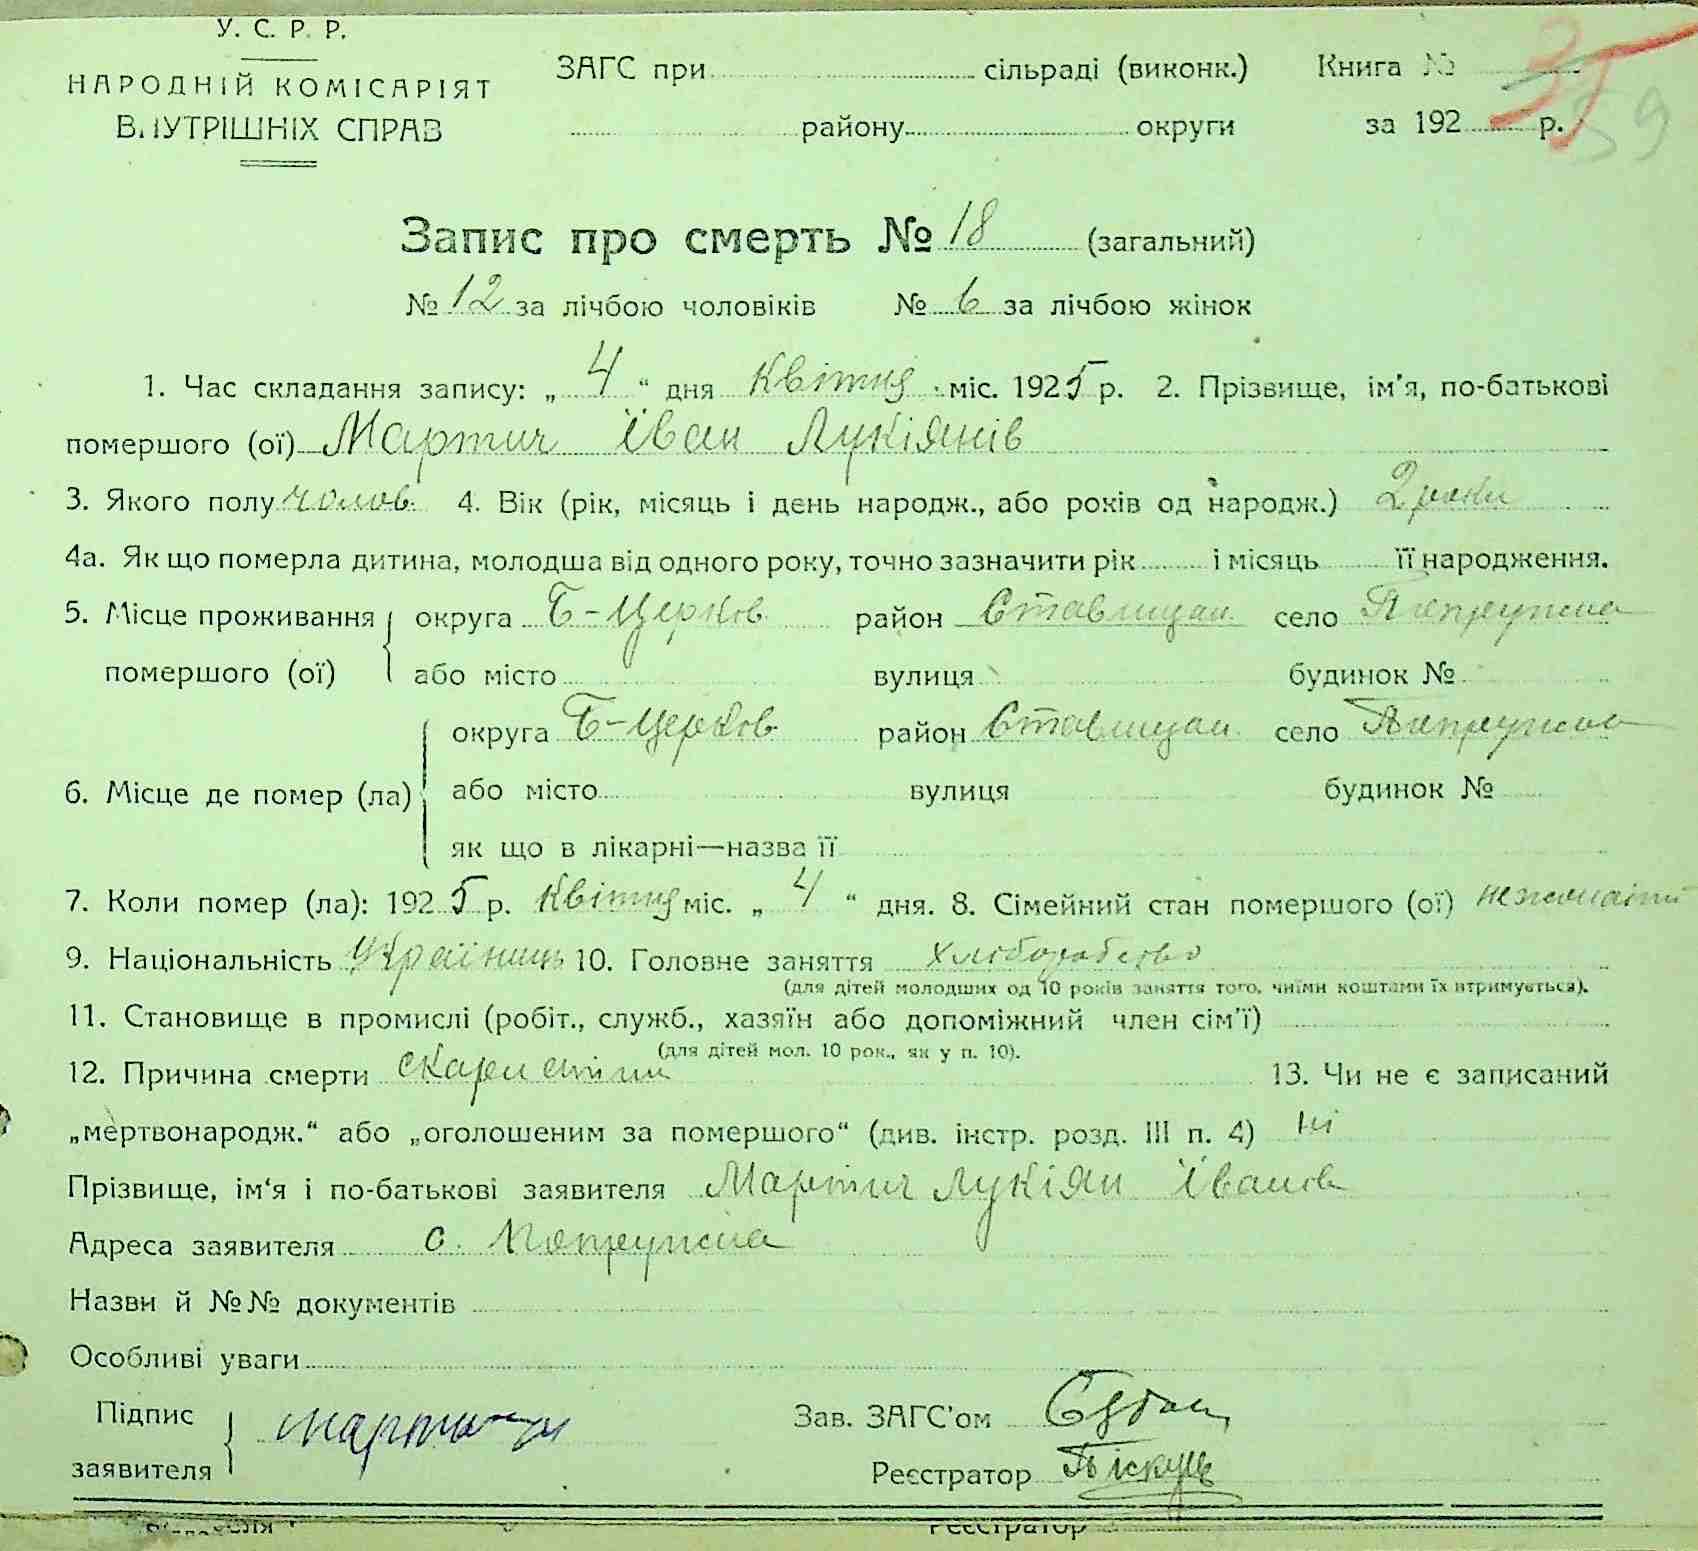 У. С. Р. Р.
НАРОДНІЙ КОМІСАРІЯТ
ВНУТРІШНІХ СПРАВ
ЗАГС при сільраді (виконк.) Книга №
району округи за 192 р.
35
59
Запис про смерть № 18 (загальний)
№ 12 за лічбою чоловіків № 6 за лічбою жінок
1. Час складання запису: „ 4 “ дня Квітня міс. 1925 р. 2. Прізвище, ім'я, по-батькові
помершого (ої) Мартич Їван Лукіянів
3. Якого полу чолов. 4. Вік (рік, місяць і день народж., або років од народж.) 2 роки
4а. Як що померла дитина, молодша від одного року, точно зазначити рік і місяць її народження.
5. Місце проживання помершого (ої) округа Б-Церков район Ставищан село
або місто вулиця будинок №
6. Місце де помер (ла) округа Б-Церков район Ставищан село
або місто вулиця будинок №
як що в лікарні—назва її
7. Коли помер (ла): 1925 р. Квітня міс. „ 4 “ дня. 8. Сімейний стан помершого (ої) нежонатий
9. Національність Українець 10. Головне заняття хліборобство
(для дітей молодших од 10 років заняття того, чиїми коштами їх втримується).
11. Становище в промислі (робіт., служб., хазяїн або допоміжний член сім'ї)
(для дітей мол. 10 рок., як у п. 10).
12. Причина смерти 13. Чи не є записаний
„мертвонародж.“ або „оголошеним за помершого“ (див. інстр. розд. III п. 4) ні
Прізвище, ім'я і по-батькові заявителя Мартич Лукіян Їванов
Адреса заявителя с.
Назви й №№ документів
Особливі уваги
Підпис заявителя Мартич
Зав. ЗАГС'ом
Реєстратор
Реєстратор